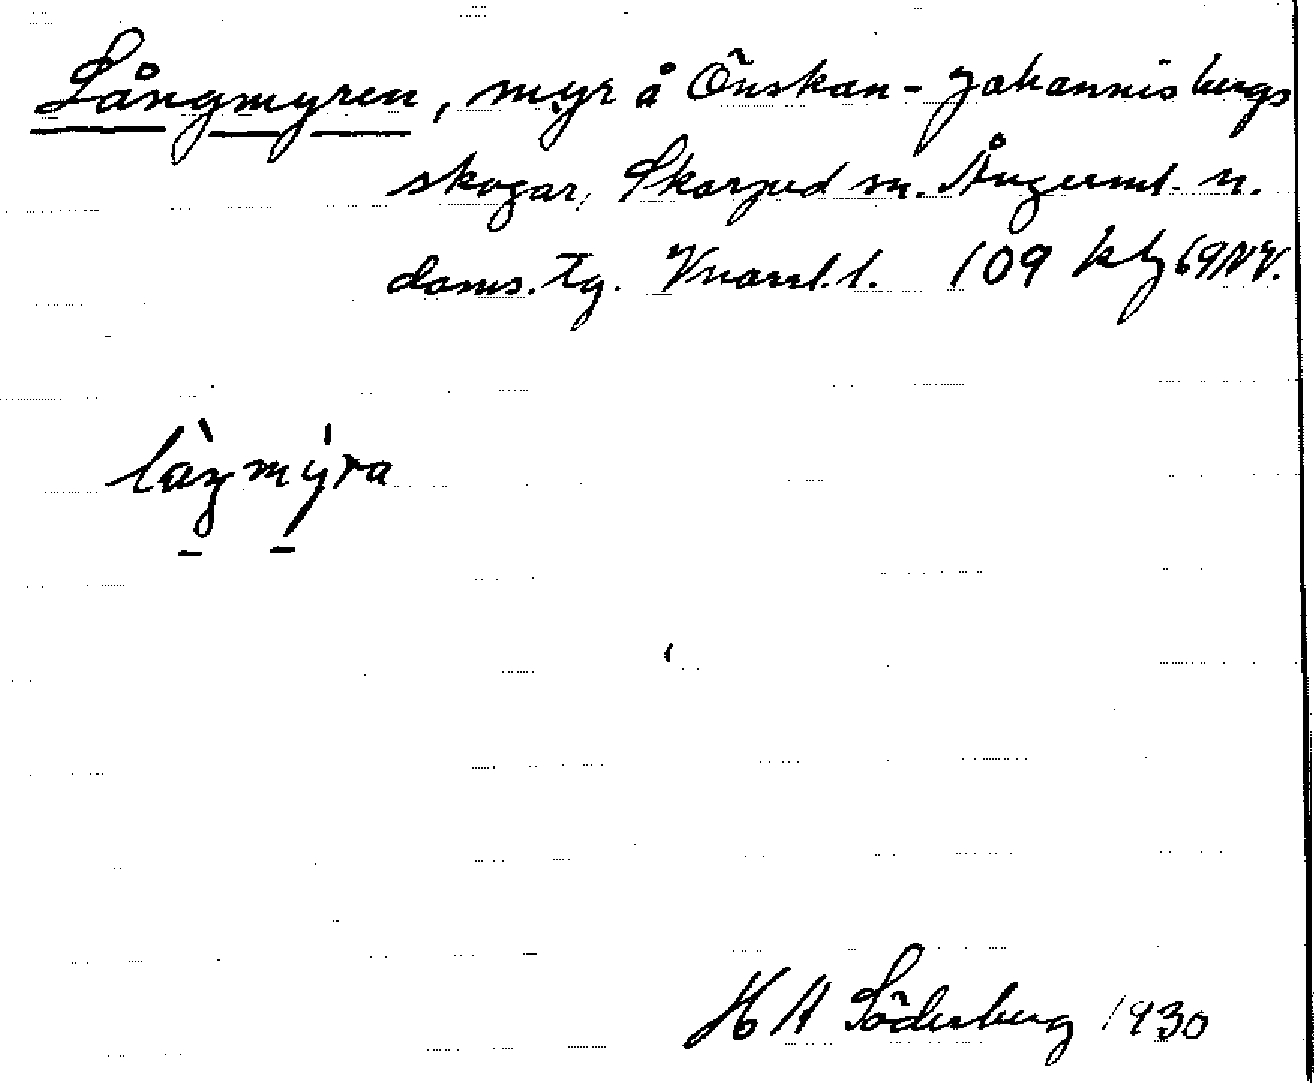 Långmyren, myr å Önskan-Johannisbergs
skogar, Skorped sn. Ångerml. n.
doms. tg. 109 kbl 69 NV.
làŋmýra
H A Söderberg 1930